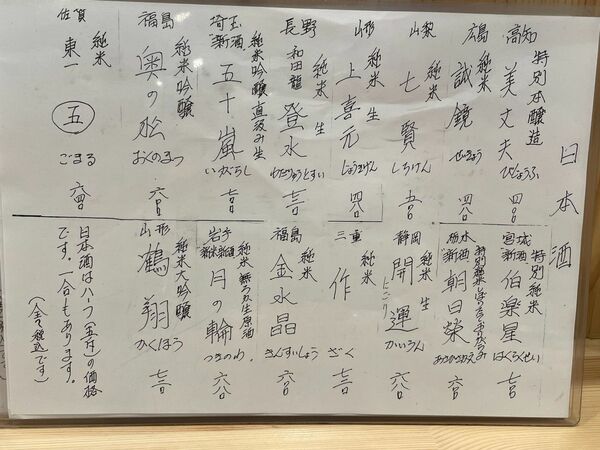 日本酒
高知
特別本醸造
美丈夫
びじょうふ
四〇〇
広島
純米
誠鏡
せいきょう
四八〇
山梨
純米
七賢
しちけん
五〇〇
山形
純米 生
上喜元
じょうきげん
四八〇
長野
純米 生
和田龍
登水
わだりゅうとすい
七三〇
埼玉
新酒
純米吟醸 直汲み生
五十嵐
いがらし
七三〇
福島
純米吟醸
奥の松
おくのまつ
六八〇
佐賀
純米
東一
五
ごまる
六四〇
宮城
新酒
特別純米
伯楽星
はくらくせい
七三〇
栃木
新酒
朝日榮
あさひさかえ
六三〇
静岡
純米 生
開運
にごり
かいうん
六八〇
三重
純米
作
ざく
七三〇
福島
純米
金水晶
きんすいしょう
六三〇
岩手
新米新酒
純米 無ろか生原酒
月の輪
つきのわ
六八〇
山形
純米大吟醸
鶴翔
かくほう
七三〇
日本酒は八勺(五勺)の価格
です。一合もあります。
(全て税込です)